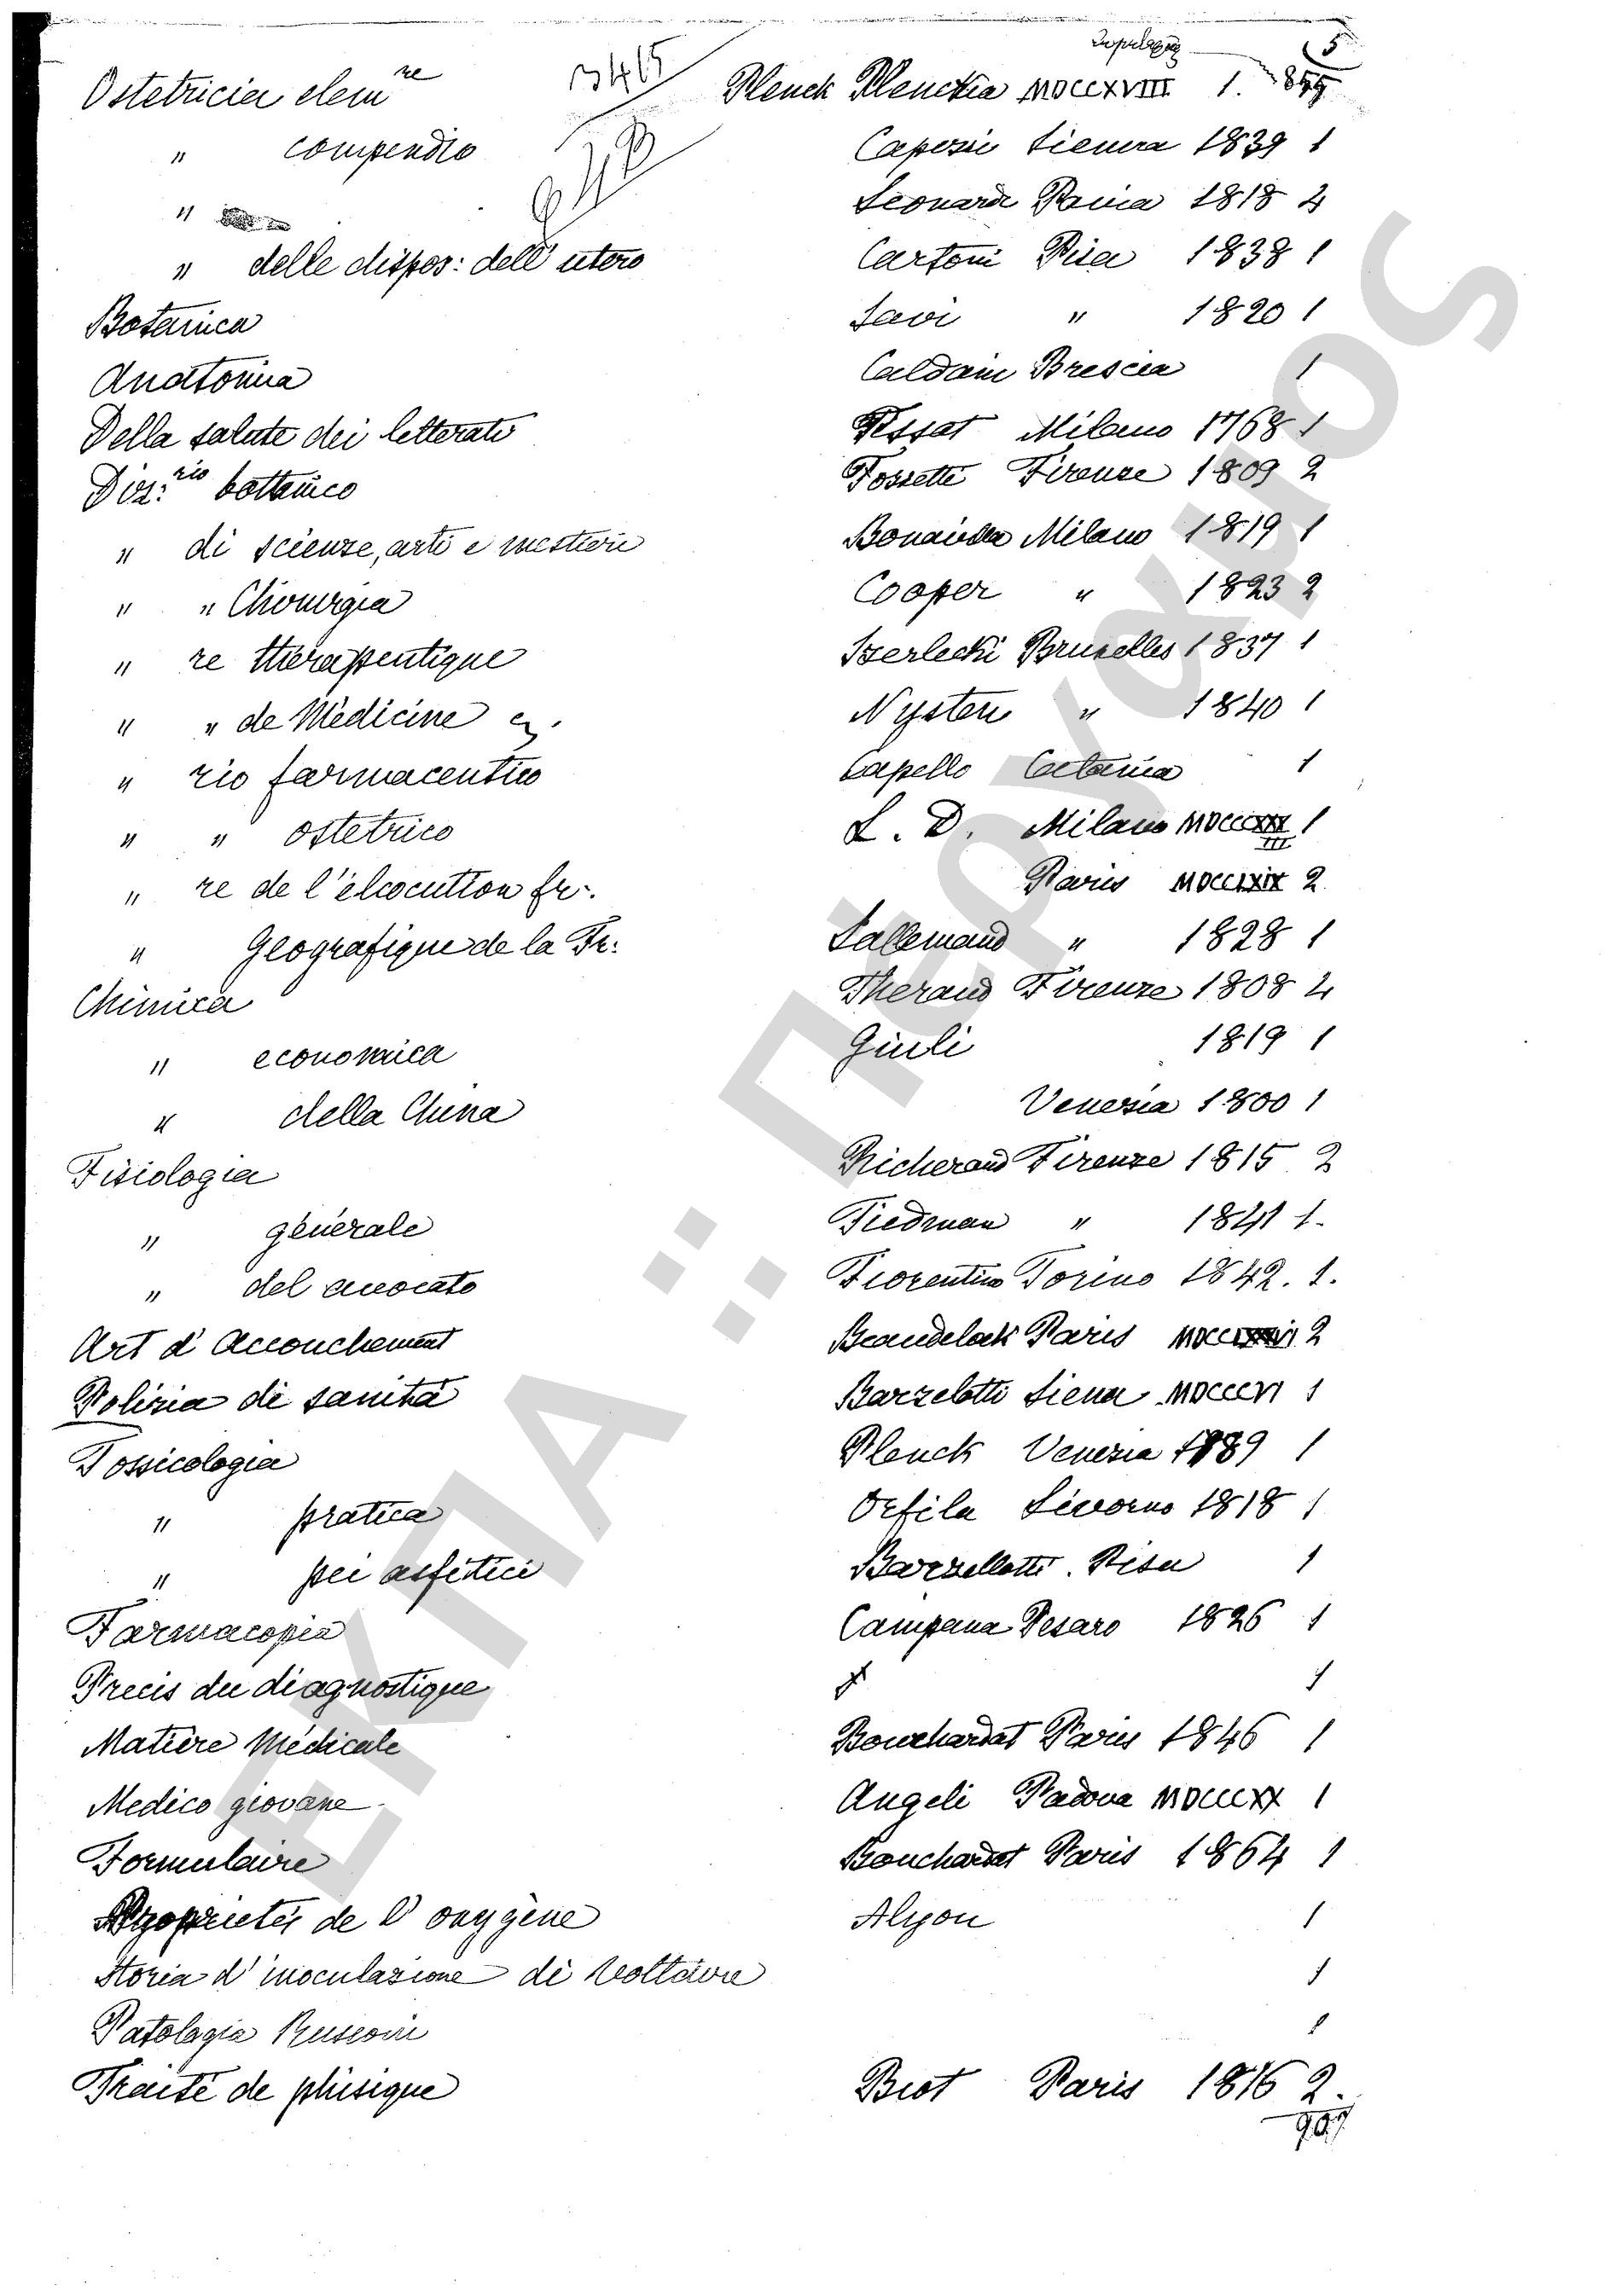 5
Ostetricia elem re Plenck Plenckia MDCCXVIII 1.
" compendio Caposii Siena 1839 1
" Leonardi Pavia 1818 4
" delle dispos: dell' utero Cartoni Pisa 1838 1
Botanica Savi " 1820 1
Anatomia Caldani Brescia 1
Della salute dei letterati Tissot Milano 1768 1
Diz: rio bottanico Fossetti Firenze 1809 2
" di scienze, arti e mestieri Bonavilla Milano 1819 1
" " Chirurgia Cooper " 1823 2
" re thérapeutique Szerlecki Bruxelles 1837 1
" " de Médicine Nysten " 1840 1
" rio farmaceutico Capello Catania 1
" " ostetrico L. D. Milano MDCCCXXIII 1
" re de l'élocution fr:. Paris MDCCLXIX 2
" Geografique de la Fr: Lallemand " 1828 1
Chimica Therand Firenze 1808 4
" economica Giuli 1819 1
" della China Venezia 1800 1
Fisiologia Richerand Firenze 1815 2
" génerale Tiedman " 1841 1.
" del avvocato Fiorentino Torino 1842. 1.
Art d' Accouchement Beaudelock Paris 2
Polizia di sanità Barzelotti Siena MDCCCVI 1
Tossicologia Plenck Venezia 1789 1
" pratica Orfila Livorno 1818 1
" pei asfitici Barzellotti. Pisa 1
Farmacopia Campana Pesaro 1826 1
Precis du diagnostique 1
Matière Médicale Bouchardat Paris 1846 1
Medico giovane Angeli Padova MDCCCXX 1
Formulaire Bouchardat Paris 1864 1
Propriétés de l' oxygène Alyon 1
Storia d' inoculazione di Voltaire 1
Patologia Rusconi 1
Traité de phisique Biot Paris 1816 2.
907
ΕΚΠΑ :: Πέργαμος